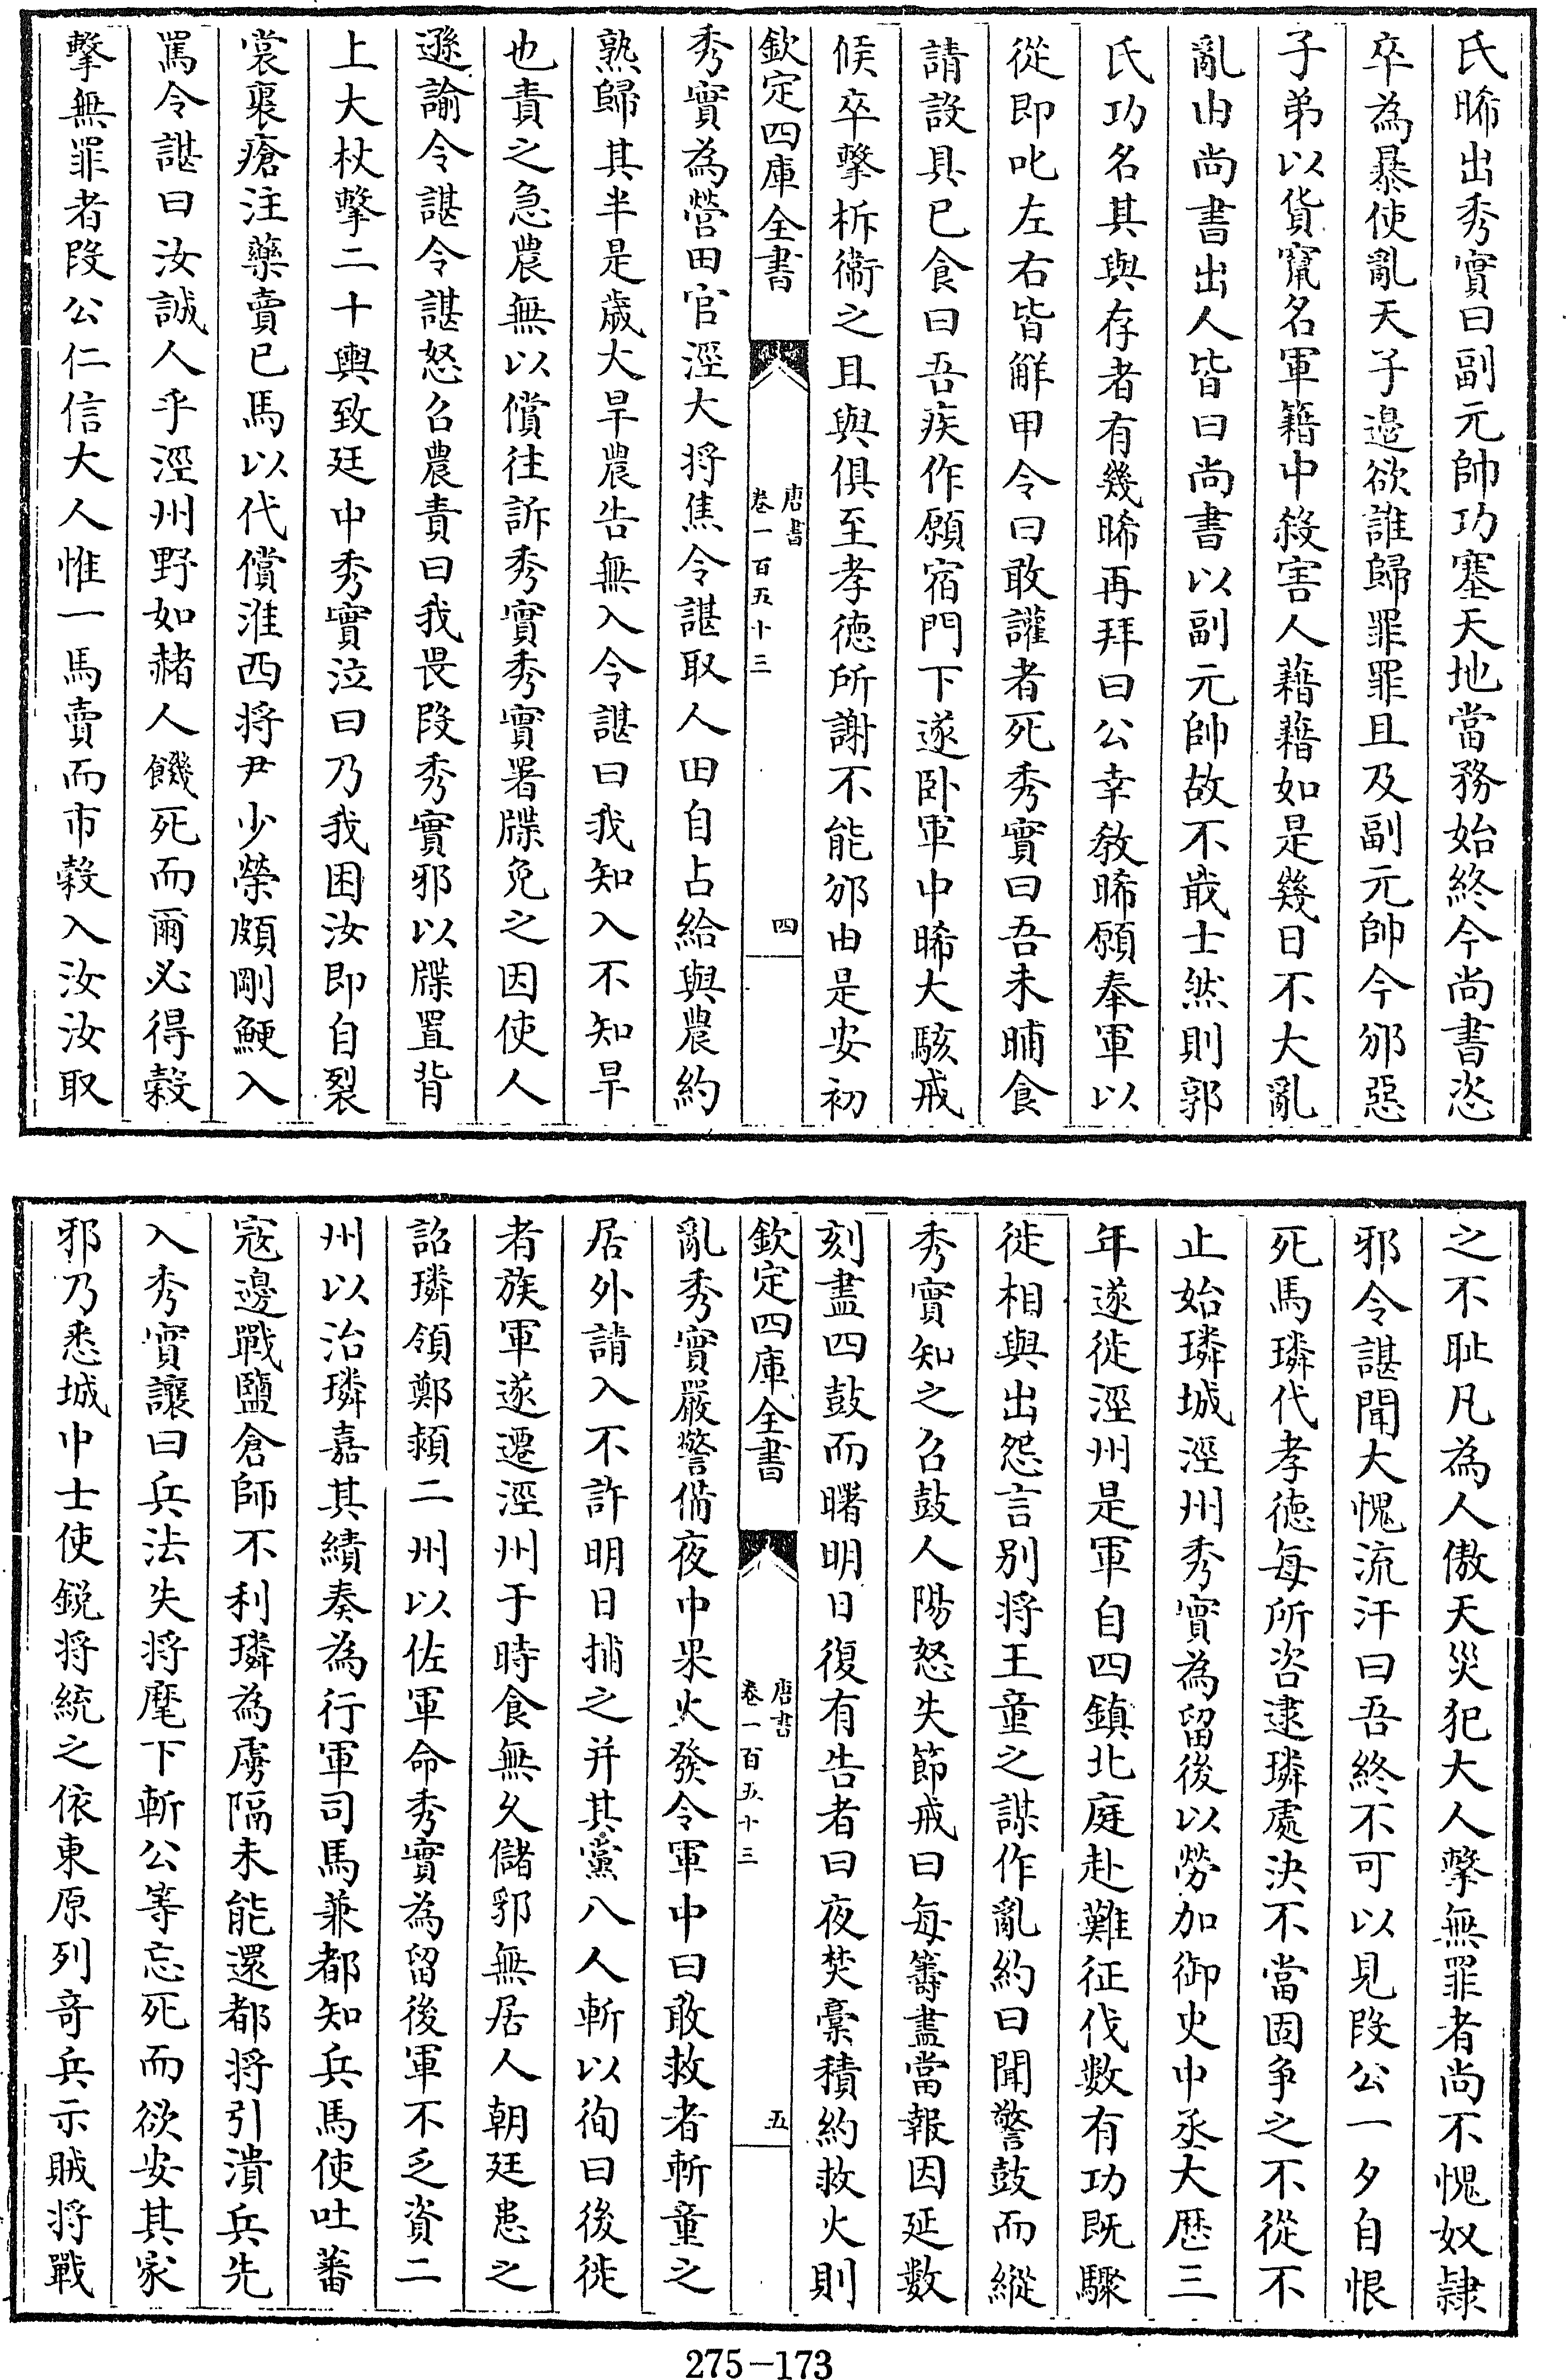 氏晞出秀實曰副元帥功塞天地當務始終今尚書恣
卒為暴使亂天子邉欲誰歸罪罪且及副元帥今邠惡
子弟以貨竄名軍籍中殺害人藉藉如是幾日不大亂
亂由尚書出人皆曰尚書以副元帥故不戢士然則郭
氏功名其與存者有幾晞再拜曰公幸教晞願奉軍以
從即叱左右皆解甲令曰敢讙者死秀實曰吾未晡食
請設具已食曰吾疾作願宿門下遂卧軍中晞大駭戒
候卒擊柝衛之且與俱至孝徳所謝不能邠由是安初
欽定四庫全書
唐書
卷一百五十三
四
秀實為營田官涇大將焦令諶取人田自占給與農約
熟歸其半是歲大旱農告無入令諶曰我知入不知旱
也責之急農無以償往訴秀實秀實署牒免之因使人
遜諭令諶令諶怒召農責曰我畏段秀實邪以牒置背
上大杖擊二十輿致廷中秀實泣曰乃我困汝即自裂
裳裹瘡注藥賣已馬以代償淮西將尹少榮頗剛鯁入
罵令諶曰汝誠人乎涇州野如赭人饑死而爾必得榖
擊無罪者段公仁信大人惟一馬賣而市榖入汝汝取
之不耻凡為人傲天災犯大人擊無罪者尚不愧奴隷
邪令諶聞大愧流汗曰吾終不可以見段公一夕自恨
死馬璘代孝德每所咨逮璘處決不當固爭之不從不
止始璘城涇州秀實為留後以勞加御史中丞大厯三
年遂徙涇州是軍自四鎮北庭赴難征伐數有功既驟
徙相與出怨言别將王童之謀作亂約曰聞警鼓而縱
秀實知之召鼓人陽怒失節戒曰每籌盡當報因延數
刻盡四鼓而曙明日復有告者曰夜焚藁積約救火則
欽定四庫全書
唐書
卷一百五十三
五
亂秀實嚴警備夜中果火發令軍中曰敢救者斬童之
居外請入不許明日捕之并其黨八人斬以徇曰後徙
者族軍遂遷涇州于時食無久儲郛無居人朝廷患之
詔璘領鄭頴二州以佐軍命秀實為留後軍不乏資二
州以治璘嘉其績奏為行軍司馬兼都知兵馬使吐蕃
寇邊戰鹽倉師不利璘為虜隔未能還都將引潰兵先
入秀實讓曰兵法失將麾下斬公等忘死而欲安其家
邪乃悉城中士使鋭將統之依東原列竒兵示賊將戰
275-173